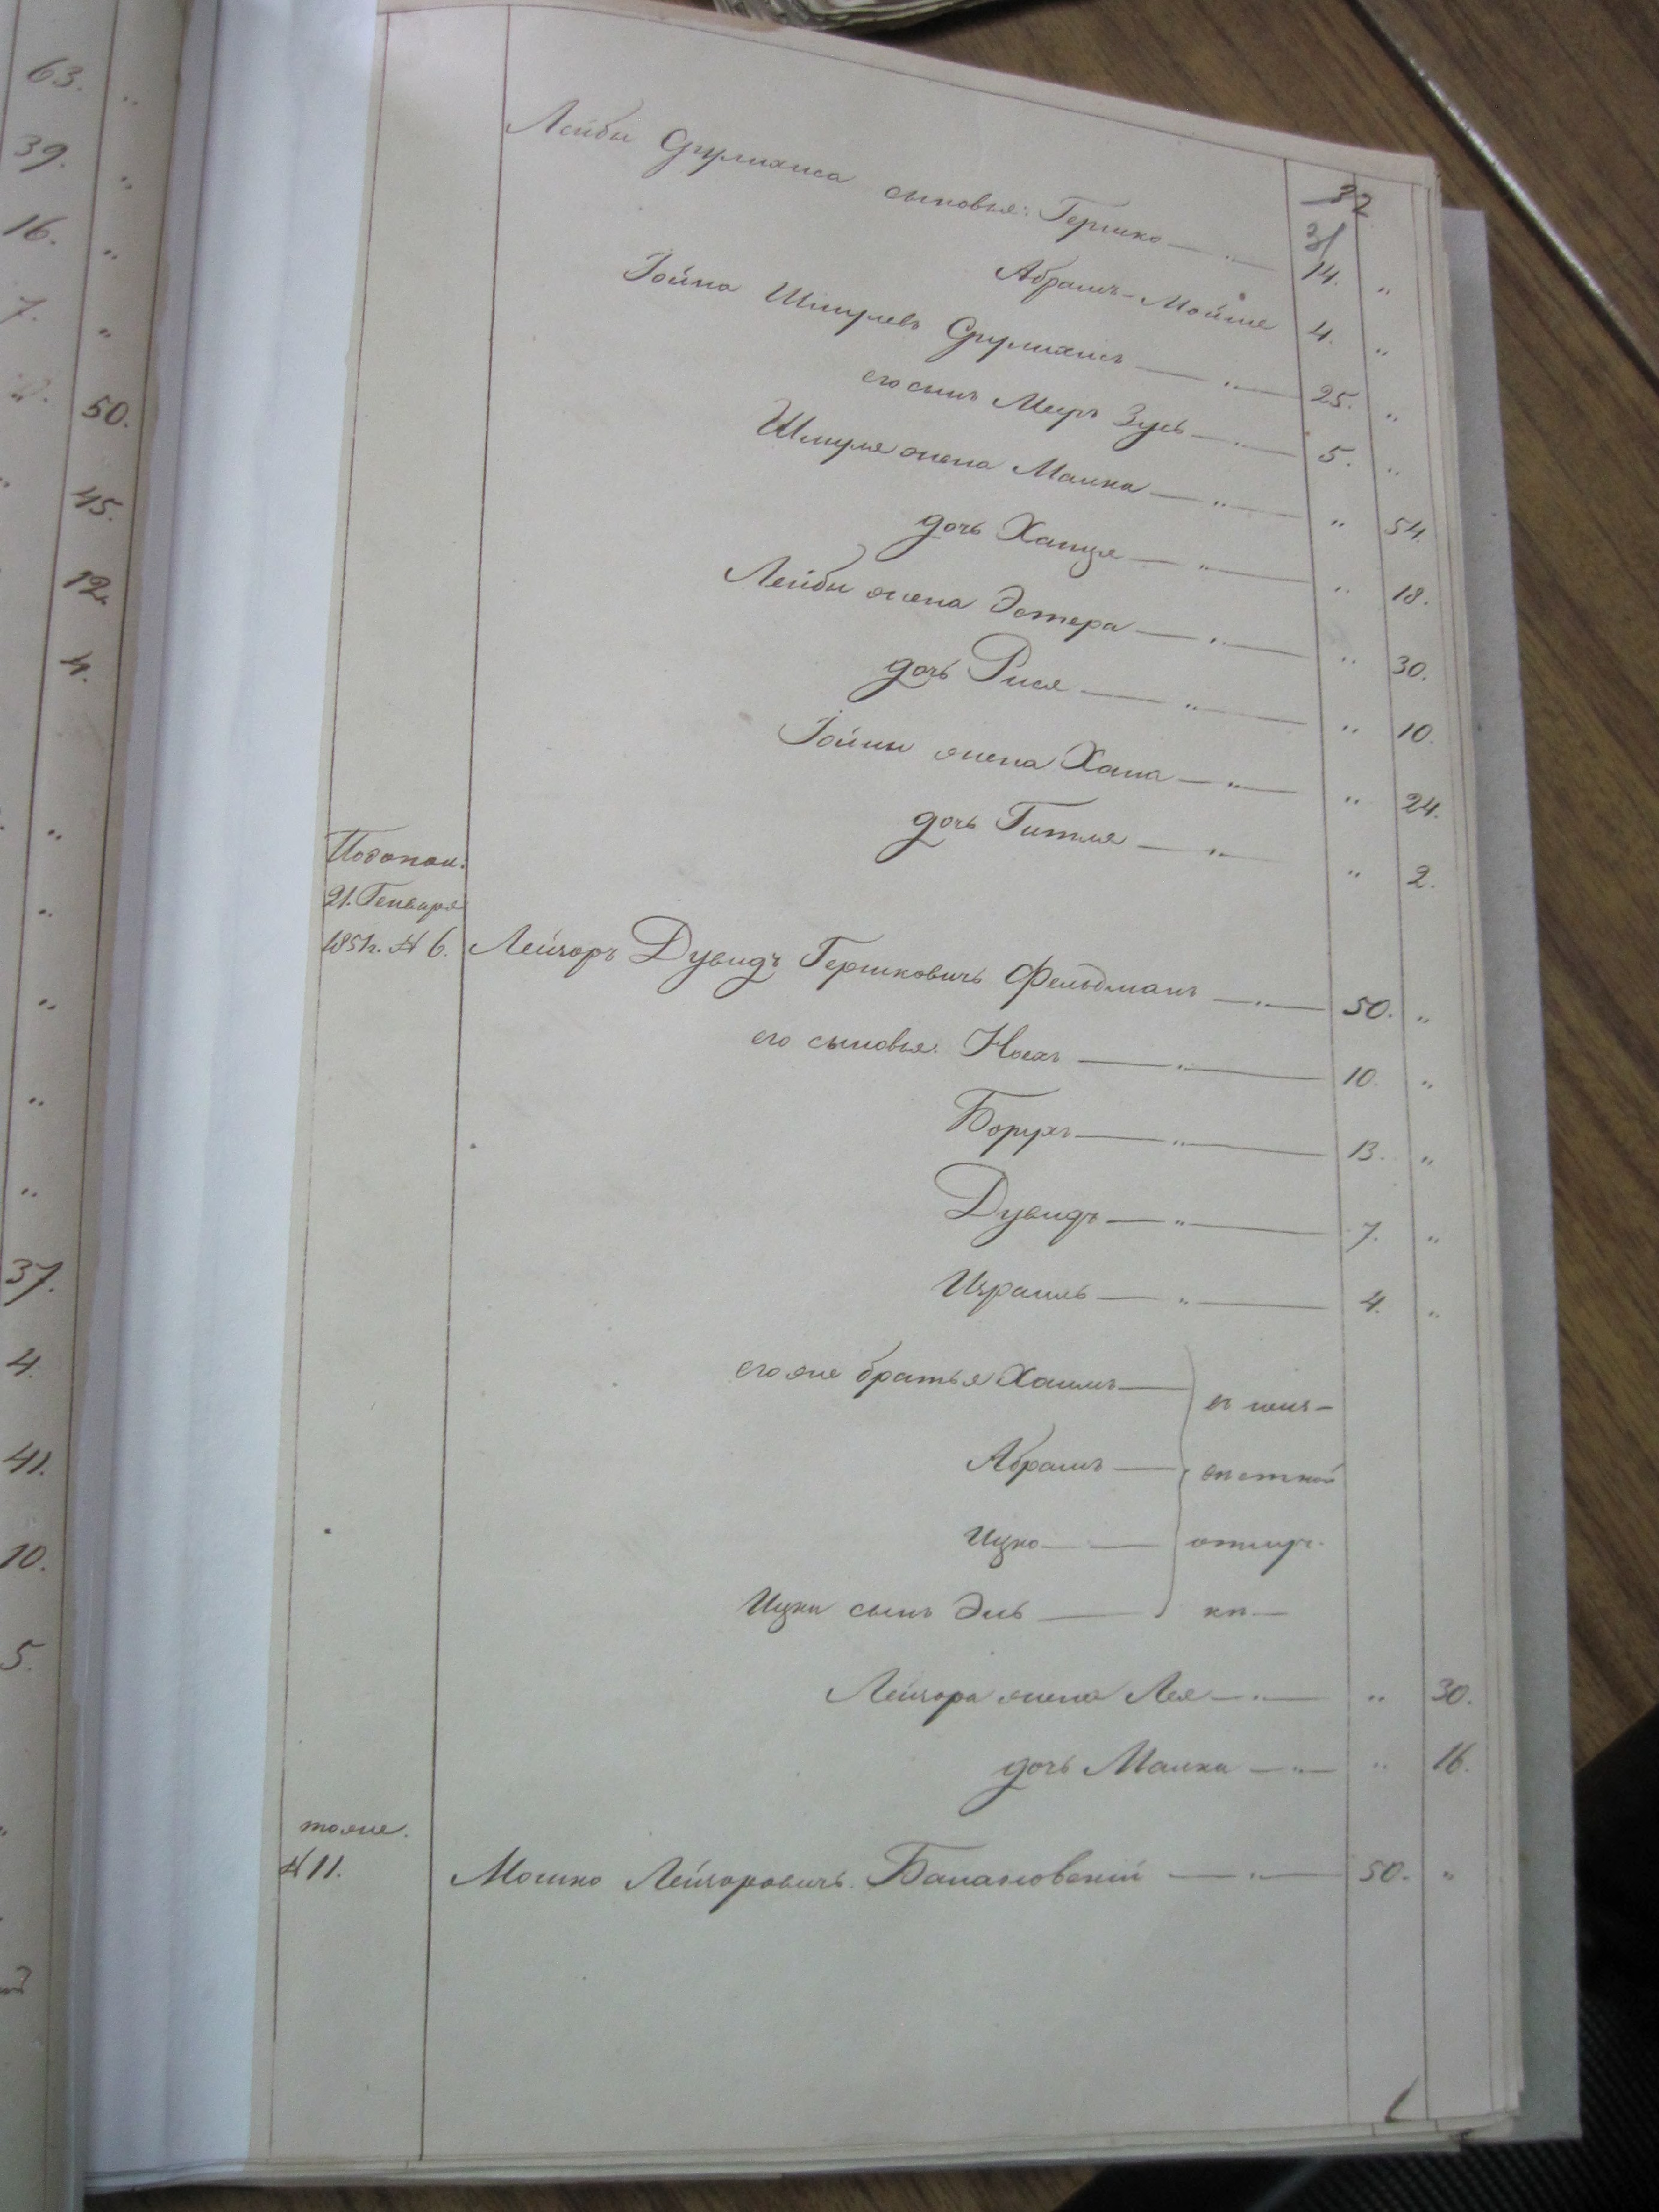 63. "
39. "
16. "
7. "
50.
45.
12.
4.
"
"
"
"
"
37.
4.
41.
10.
5.
32
31
Лейбы Срулихиса сыновья: Гершко — " — 14. "
Абрамъ-Мойше 4. "
Іойна Шмулевъ Срулихисъ — " — 25. "
его сынъ Мееръ Зусь — " — 5. "
Шмуля жена Малка — " — " 54.
дочь Ханця — " — " 18.
Лейбы жена Эстера — " — " 30.
дочь Рися — " — " 10.
Іойны жена Хана — " — " 24.
дочь Гитля — " — " 2.
21. Генваря
1851г. № 6. Лейзоръ Дувидъ Гершковичъ Фельдманъ — " — 50. "
его сыновья: Ноехъ — " — 10. "
Борухъ — " — 13. "
Дувидъ — " — 7. "
Израиль — " — 4. "
его же братья Хаимъ —
Абрамъ —
Ицко — —
Ицки сынъ Эль —
Лейзора жена Лея — " — " 30.
дочь Малка — " — " 16.
тоже.
№ 11. Мошко Лейзоровичъ — " — 50. "